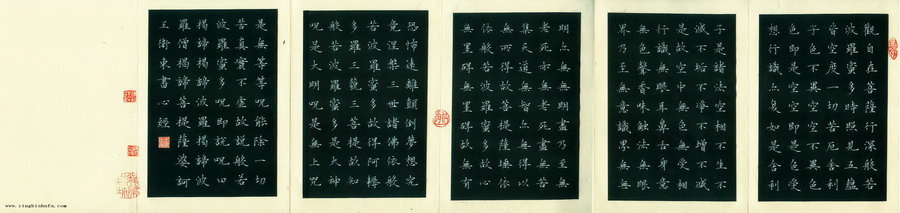 觀自在菩薩行深般若
波羅蜜多時照見五蘊
皆空度一切苦厄舍利
子色不異空空不異色
色即是空空即是色受
想行識亦復如是舍利
子是諸法空相不生不
滅不垢不淨不增不減
是故空中無色無受想
行識無眼耳鼻舌身意
無色聲香味觸法無眼
界乃至無意識界無無
明亦無無明盡乃至無
老死亦無老死盡無苦
集滅道無智亦無得以
無所得故菩提薩埵
依般若波羅蜜多故心
無罣礙無罣礙故無有
恐怖遠離顛倒夢想究
竟涅槃三世諸佛依般
若波羅蜜多故得阿耨
多羅三藐三菩提故知
般若波羅蜜多是大神
呪是大明呪是無上呪
是無等等呪能除一切
苦真實不虛故説般若
波羅蜜多呪即説呪曰
揭諦揭諦波羅揭諦波
羅僧揭諦菩提薩婆訶
王衛東書心經
www.yingbishufa.com